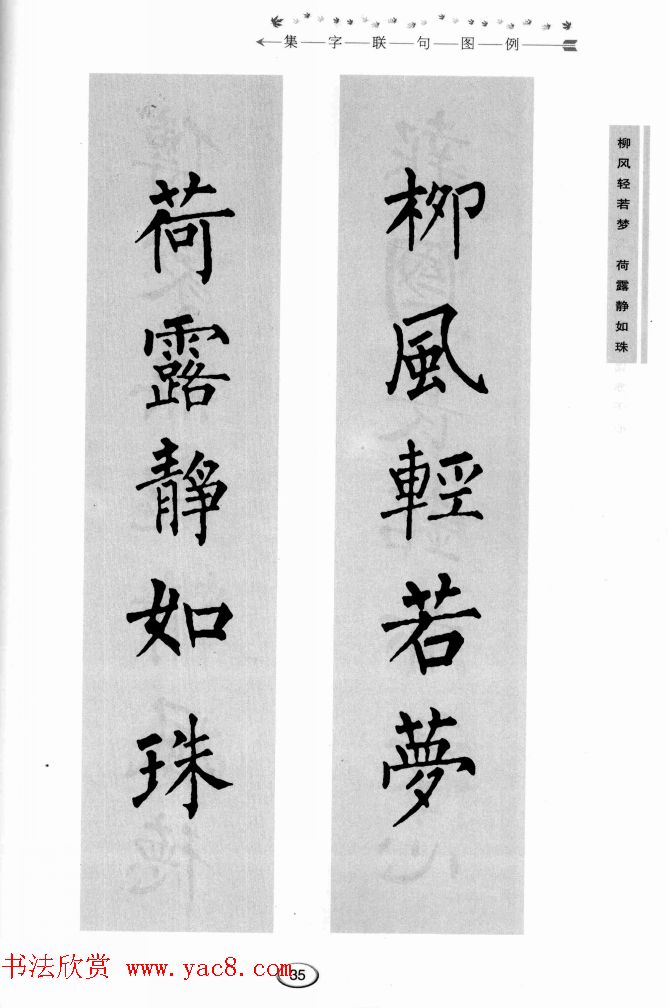 集字联句图例
柳风轻若梦 荷露静如珠
柳風輕若夢
荷露靜如珠
35
书法欣赏 www.yac8.com